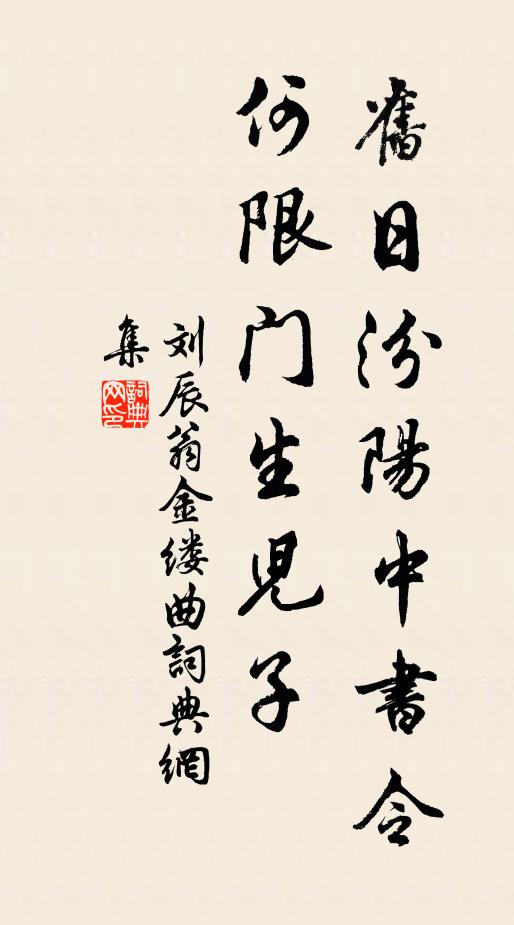 舊日汾陽中書令
何限门生児子
刘辰翁金缕曲詞典網
集
詞典网印